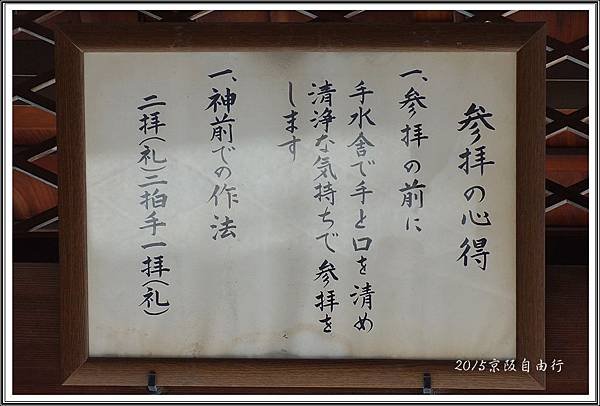 参拝の心得
一、参拝の前に
手水舎で手と口を清め
清浄な気持ちで参拝を
します
一、神前での作法
二拝(礼)二拍手一拝(礼)
2015京阪自由行